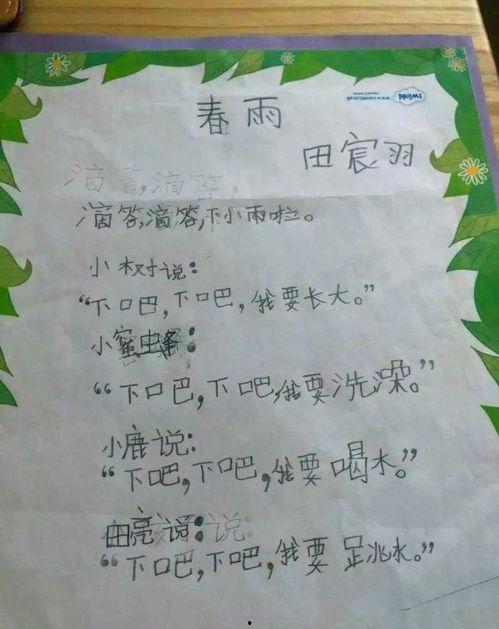 twinkl
春雨
田宸羽
滴答,滴答,
滴答,滴答,下小雨啦。
小树说:
“下吧,下吧,我要长大。”
小蜜虫:
“下吧,下吧,我要洗澡。”
小鹿说:
“下吧,下吧,我要喝水。”
田亮说:说
“下吧,下吧,我要跳水。”